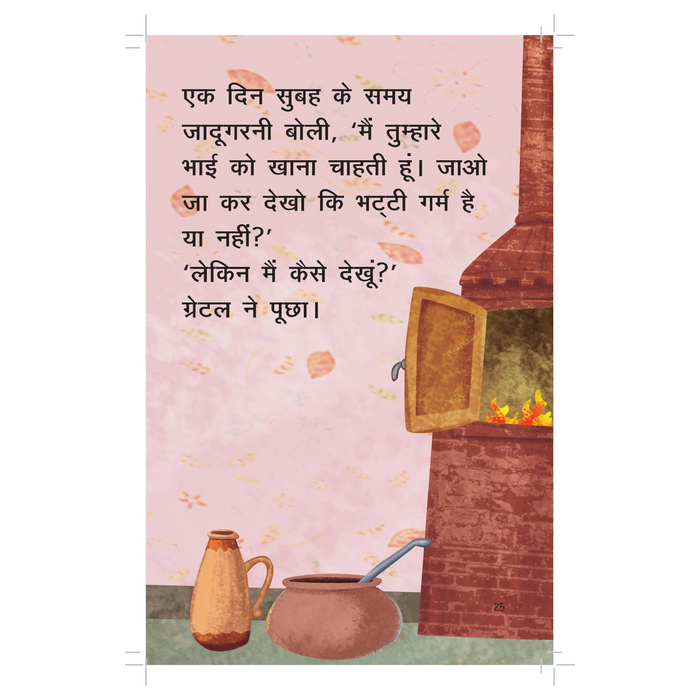 एक दिन सुबह के समय
जादूगरनी बोली, ‘मैं तुम्हारे
भाई को खाना चाहती हूं। जाओ
जा कर देखो कि भट्टी गर्म है
या नहीं?’
‘लेकिन मैं कैसे देखूं?’
ग्रेटल ने पूछा।
25